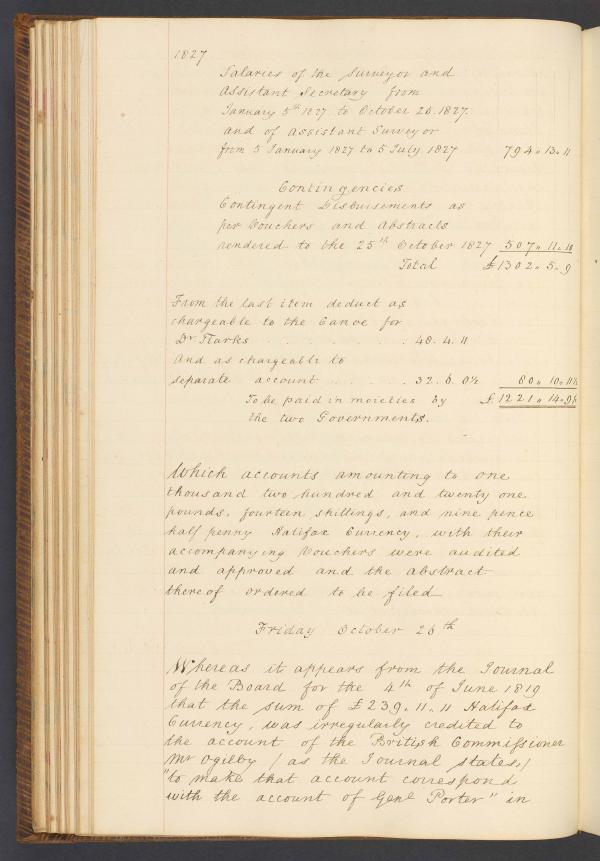 1827
Salaries of the Surveyor and
Assistant Secretary from
January 5th 1827 to October 26. 1827.
and of Assistant Surveyor
from 5 January 1827 to 5 July 1827 794 " 13 " 11
Contingencies
Contingent Disbursements as
per Vouchers and Abstracts
rendered to the 25th October 1827 507 " 11 " 10
Total £1302 " 5 " 9
From the last item deduct as
chargeable to the Canoe for
Dr Tiarks . . . . . . . . . 48. 4. 11
And as chargeable to
separate account . . . . . . 32. 6. 0½ 80 " 10 " 11½
To be paid in moieties by £1221 " 14 " 9½
the two Governments.
Which accounts amounting to one
thousand two hundred and twenty one
pounds, fourteen shillings, and nine pence
half penny Halifax Currency, with their
accompanying Vouchers were audited
and approved and the abstract
thereof ordered to be filed
Friday October 26th
Whereas it appears from the Journal
of the Board for the 4th of June 1819
that the sum of £239. 11. 11 Halifax
Currency, was irregularly credited to
the account of the British Commissioner
Mr Ogilby / as the Journal states, /
"to make that account correspond
with the account of Genl Porter" in